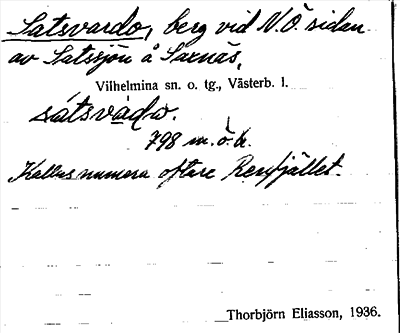 Satsvardo, berg vid N.Ö. sidan
av Satssjön å Saxnäs,
Vilhelmina sn. o. tg., Västerb. l.
sátsvàdw.
798 m. ö. h.
Kallas numera oftare Renfjället.
Thorbjörn Eliasson, 1936.